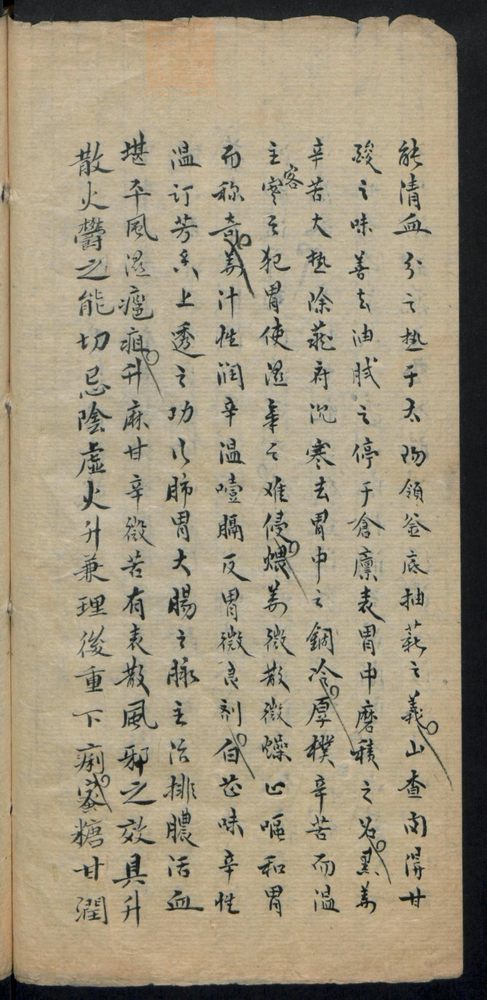 能清血分之热于太阳領釜底抽薪之義山查肉得甘
酸之味善去油膩之停于倉廪表胃中磨積之名黑姜
辛苦大热除藏府沉寒去胃中之錮冷厚樸辛苦而温
主客寒之犯胃使湿氣之难侵煨姜微散微燥止嘔和胃
而称奇姜汁性润辛温噎膈反胃微良剂白芷味辛性
温订芳香上透之功行肺胃大腸之脉主治排膿活血
堪平風湿瘟疽升麻甘辛微苦有表散風邪之效具升
散火鬱之能切忌陰虚火升兼理後重下痢蜜糖甘潤